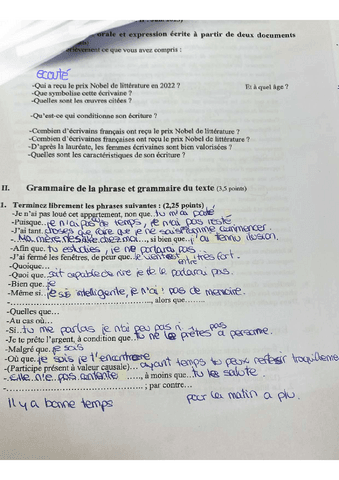 orale et expression écrite à partir de deux documents
ce que vous avez compris :
écouté
-Qui a reçu le prix Nobel de littérature en 2022 ? Et à quel âge ?
-Que symbolise cette écrivaine ?
-Quelles sont les œuvres citées ?
-Qu'est-ce qui conditionne son écriture ?
-Combien d'écrivains français ont reçu le prix Nobel de littérature ?
-Combien d'écrivaines françaises ont reçu le prix Nobel de littérature ?
-D'après la lauréate, les femmes écrivaines sont bien valorisées ?
-Quelles sont les caractéristiques de son écriture ?
II. Grammaire de la phrase et grammaire du texte (3,5 points)
1. Terminez librement les phrases suivantes : (2,25 points)
-Je n'ai pas loué cet appartement, non que. tu m'ai
-Puisque. je n'ai pas de temps, je n'ai pas resté
-J'ai tant. choses que faire que je ne sais comme commencer.
- Ma mère chez moi..., si bien que. j'ai illusion.
-Afin que. tu étudies, je ne parlerai pas
-J'ai fermé les fenêtres, de peur que. le vent très fort.
-Quoique...
-Quoi que. soit capable de rire je de le parlerai pas.
-Bien que. je
-Même si. je suis intelligente, je n'ai pas de memoire.
-............................, alors que........
-Quelles que...
-Au cas où...
-Si. tu me parlas je n'bi peu pas ni pas
-Je te prête l'argent, à condition que. tu ne le prêtes à personne.
-Malgré que. je sois
-Où que. je sois je t'encontrare
-(Participe présent à valeur causale)... ayant temps tu peux tranquillement
- elle n'e pas contente ........, à moins que... tu le salute.
-............................ ; par contre...
Il y a bonne temps pour la matin a plu.